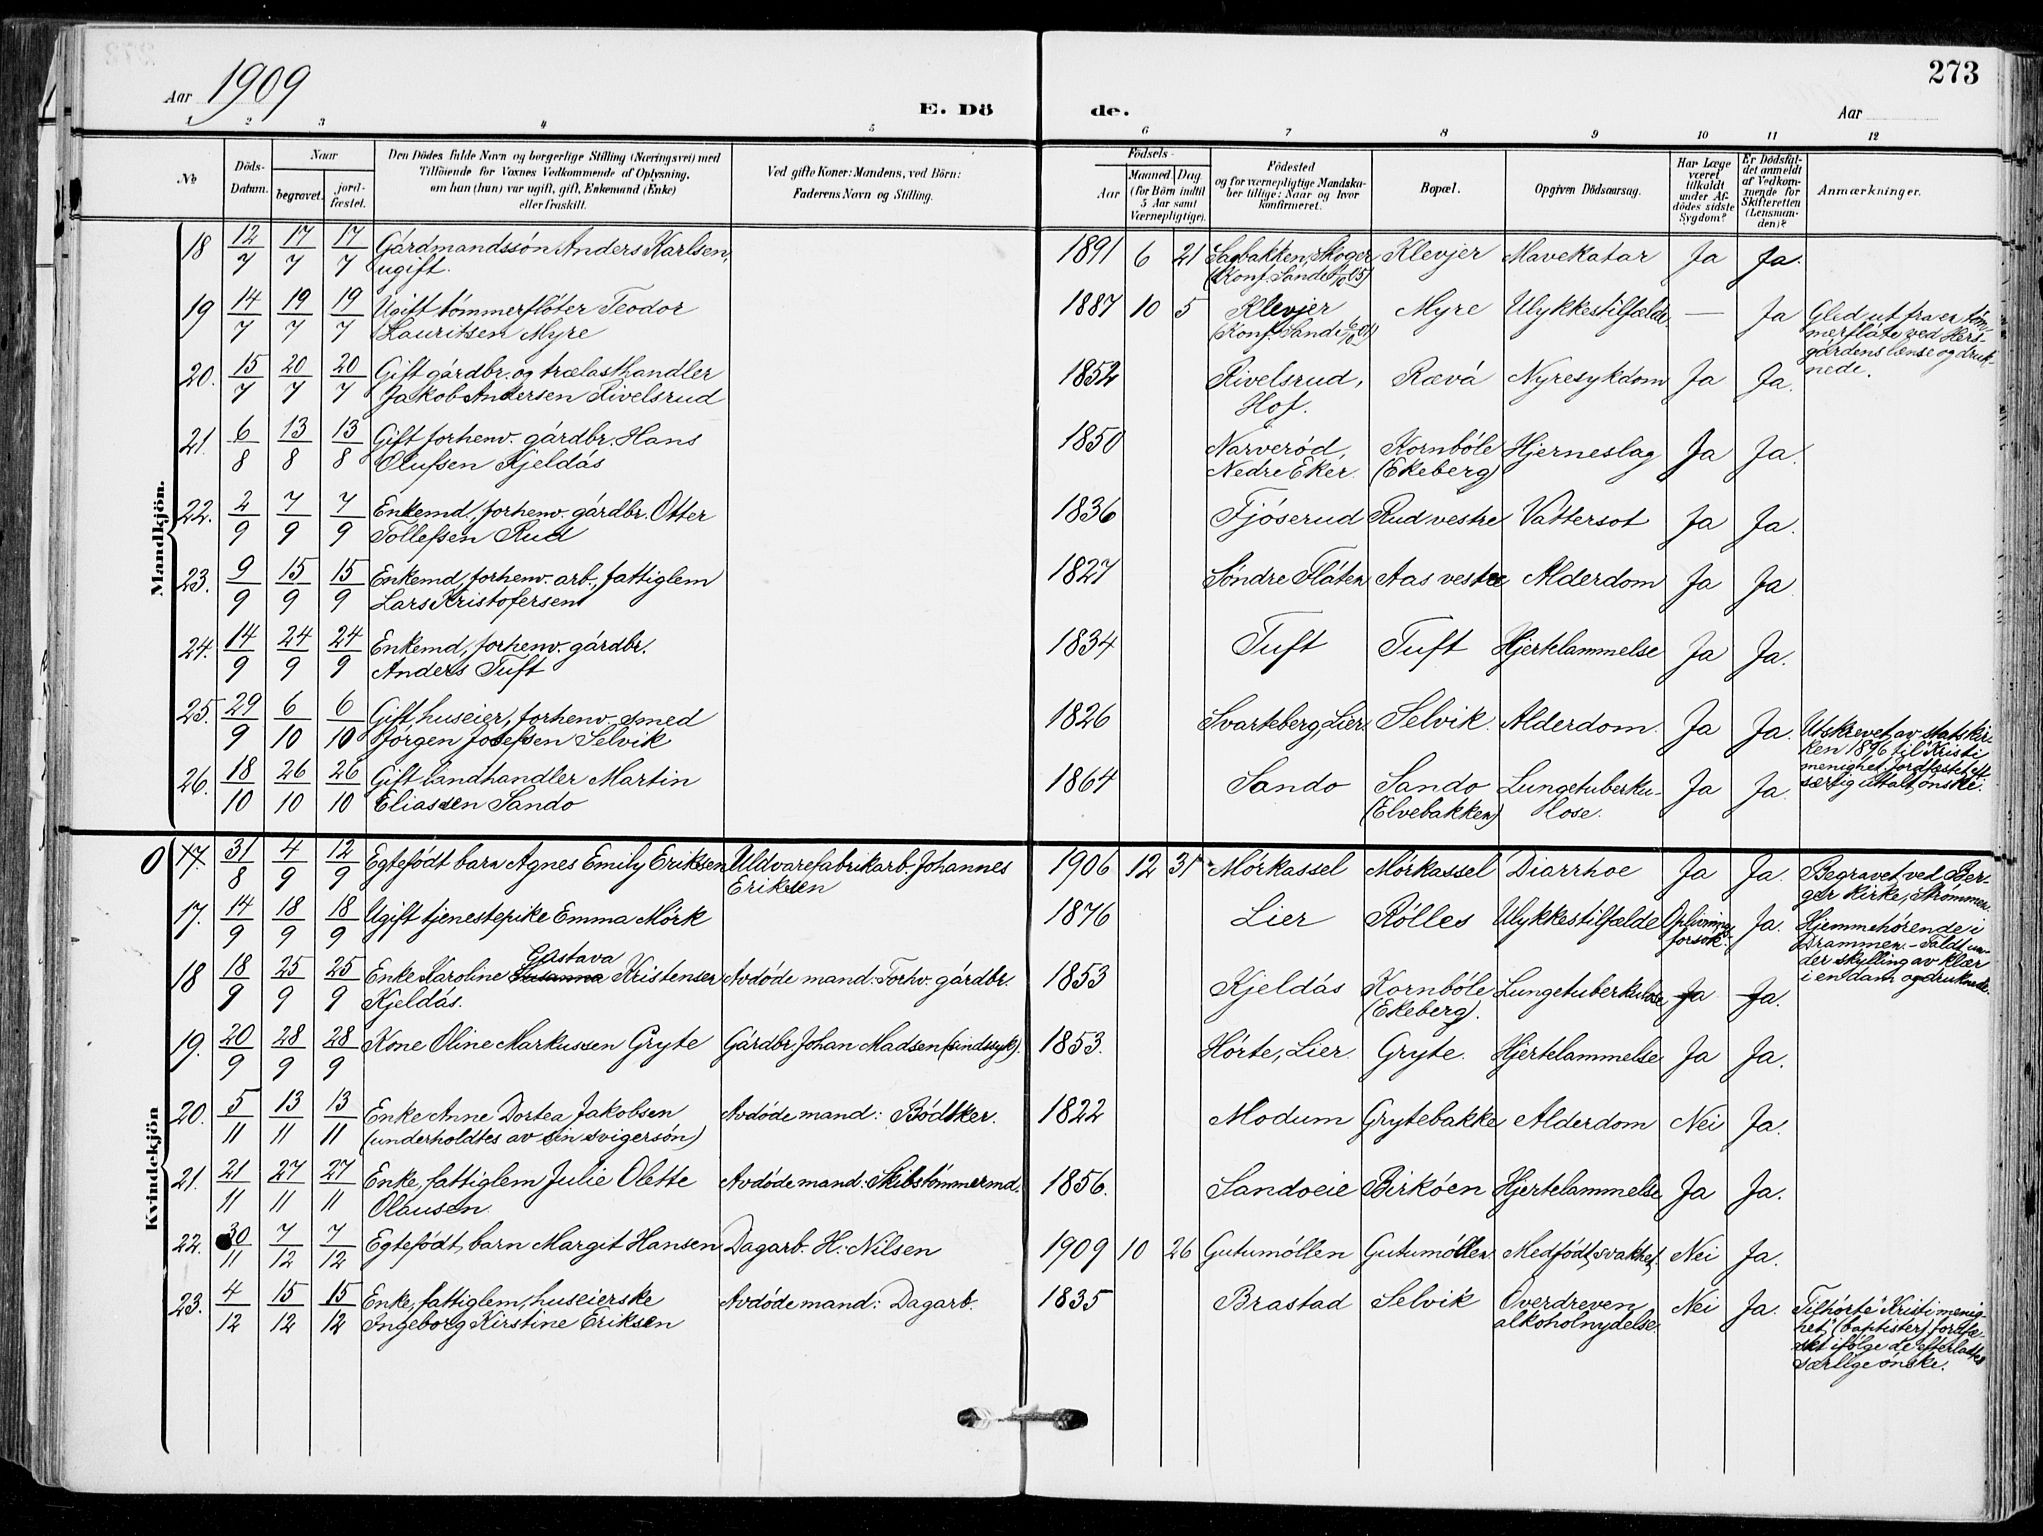 273
Aar 1909
E. Dö de.
Aar
1 2 3 4 5 6 7 8 9 10 11 12
No
Döds-
Datum.
Naar
begravet.
jord-
fæstet.
Den Dödes fulde Navn og borgerlige Stilling (Næringsvei) med
Tilföiende for Voxnes Vedkommende af Oplysning,
om han (hun) var ugift, gift, Enkemand (Enke)
eller fraskilt.
Ved gifte Koner: Mandens, ved Börn:
Faderens Navn og Stilling.
Födsels-
Aar
Maaned Dag
(for Börn indtil
5 Aar samt
Værnepligtige).
Födested
og for værnepligtige Mandska-
ber tillige: Naar og hvor
konfirmeret.
Bopæl.
Opgiven Dödsaarsag.
Har Læge
været
tilkaldt
under Af-
dödes sidste
Sygdom?
Er Dödsfal-
det anmeldt
af Vedkom-
mende for
Skifteretten
(Lensman-
den)?
Anmærkninger.
Mandkjön.
18 12/7 17/7 17/7 Gårdmandssön Anders Karlsen, 1891 6 21 Sagbakken, Skoger Klevjer Mavekatar Ja Ja.
ugift. (Konf. Sande
19 14/7 19/7 19/7 Ugift tömmerflöter Teodor 1887 10 5 Klevjer Myre Ulykkestilfælde — Ja Glid ut fra en töm-
Lauritsen Myre (Konf. Sande merflåte ved Hers-
gårdens lænse og druk-
nede.
20. 15/7 20/7 20/7 Gift gårdbr. og trælasthandler 1852 Rivelsrud, Rævå Nyresykdom Ja Ja.
Jakob Andersen Rivelsrud Hof.
21. 6/8 13/8 13/8 Gift forhenv. gårdbr. Hans 1850 Narveröd, Kornböle Hjerneslag Ja Ja.
Olufsen Kjeldås Nedre Eker. (Ekeberg)
22. 2/9 7/9 7/9 Enkemd, forhenv. gårdbr. Otter 1836 Fjöserud Rud vestre Vattersot Ja Ja.
Tollefsen Rud
23. 9/9 15/9 15/9 Enkemd, forhenv. arb., fattiglem 1827 Söndre Flåten Aas vestre Alderdom Ja Ja
Lars Kristofersen
24. 14/9 24/9 24/9 Enkemd, forhenv. gårdbr. 1834 Tuft Tuft Hjertelammelse Ja Ja.
Anders Tuft
25. 29/9 6/10 6/10 Gift, huseier, forhenv. smed 1826 Svarteberg, Lier. Selvik. Alderdom. Ja Ja. Utskrevet av statskir-
Jörgen Josefsen Selvik ken 1896 til "Kristi
menighet". Jordfæstet eft.
særlig uttalt önske.
26. 18/10 26/10 26/10 Gift landhandler Martin 1864 Sando Sando Lungetuberku- Ja Ja
Eliassen Sando (Elvebakken) lose.
Kvindekjön
O 17. 31/8 4/9 12/9 Egtefödt barn Agnes Emily Eriksen Uldvarefabrikarb. Johannes 1906 12 31 Mörkassel Mörkassel Diarrhoe Ja Ja. Begravet ved Ber-
Eriksen ger kirke, Strömmen.
17. 14/9 18/9 18/9 Ugift tjenestepike Emma Mörk 1876 Lier Rölles Ulykkestilfælde Oplivnings- Ja. Hjemmehörende i
forsök. Drammen. - Faldt un-
der skylling av klær
i en dam og druknede.
Gustava
18 18/9 25/9 25/9 Enke Karoline Susanna Kristensen Avdöde mand: Forhv. gårdbr. 1853 Kjeldås Kornböle Lungetuberkulose Ja Ja.
Kjeldås. (Ekeberg).
19. 20/9 28/9 28/9 Kone Oline Markussen Gryte Gårdbr. Johan Madsen (sindssyk). 1853. Hörte, Lier. Gryte. Hjertelammelse Ja Ja.
20. 5/11 13/11 13/11 Enke Anne Dortea Jakobsen Avdöde mand: Bödtker. 1822 Modum Grytebakke Alderdom Nei Ja.
(underholdtes av sin svigersön)
21. 21/11 27/11 27/11 Enke, fattiglem Julie Olette Avdöde mand: Skibstömmermd. 1856. Sandoeie Birköen Hjertelammelse Ja Ja.
Olausen.
22. 30/11 7/12 7/12 Egtefödt barn Margit Hansen Dagarb. H. Nilsen 1909 10 26 Gutumöllen Gutumöllen Medfödt svakhet. Nei Ja.
23. 4/12 15/12 15/12 Enke, fattiglem, huseierske Avdöde mand: Dagarb. 1835 Brastad Selvik Overdreven Nei Ja. Tilhörte "Kristi menig-
Ingeborg Kirstine Eriksen alkoholnydelse. het" (baptister), jordfæ-
stet ifölge de efterlattes
særlige önske.